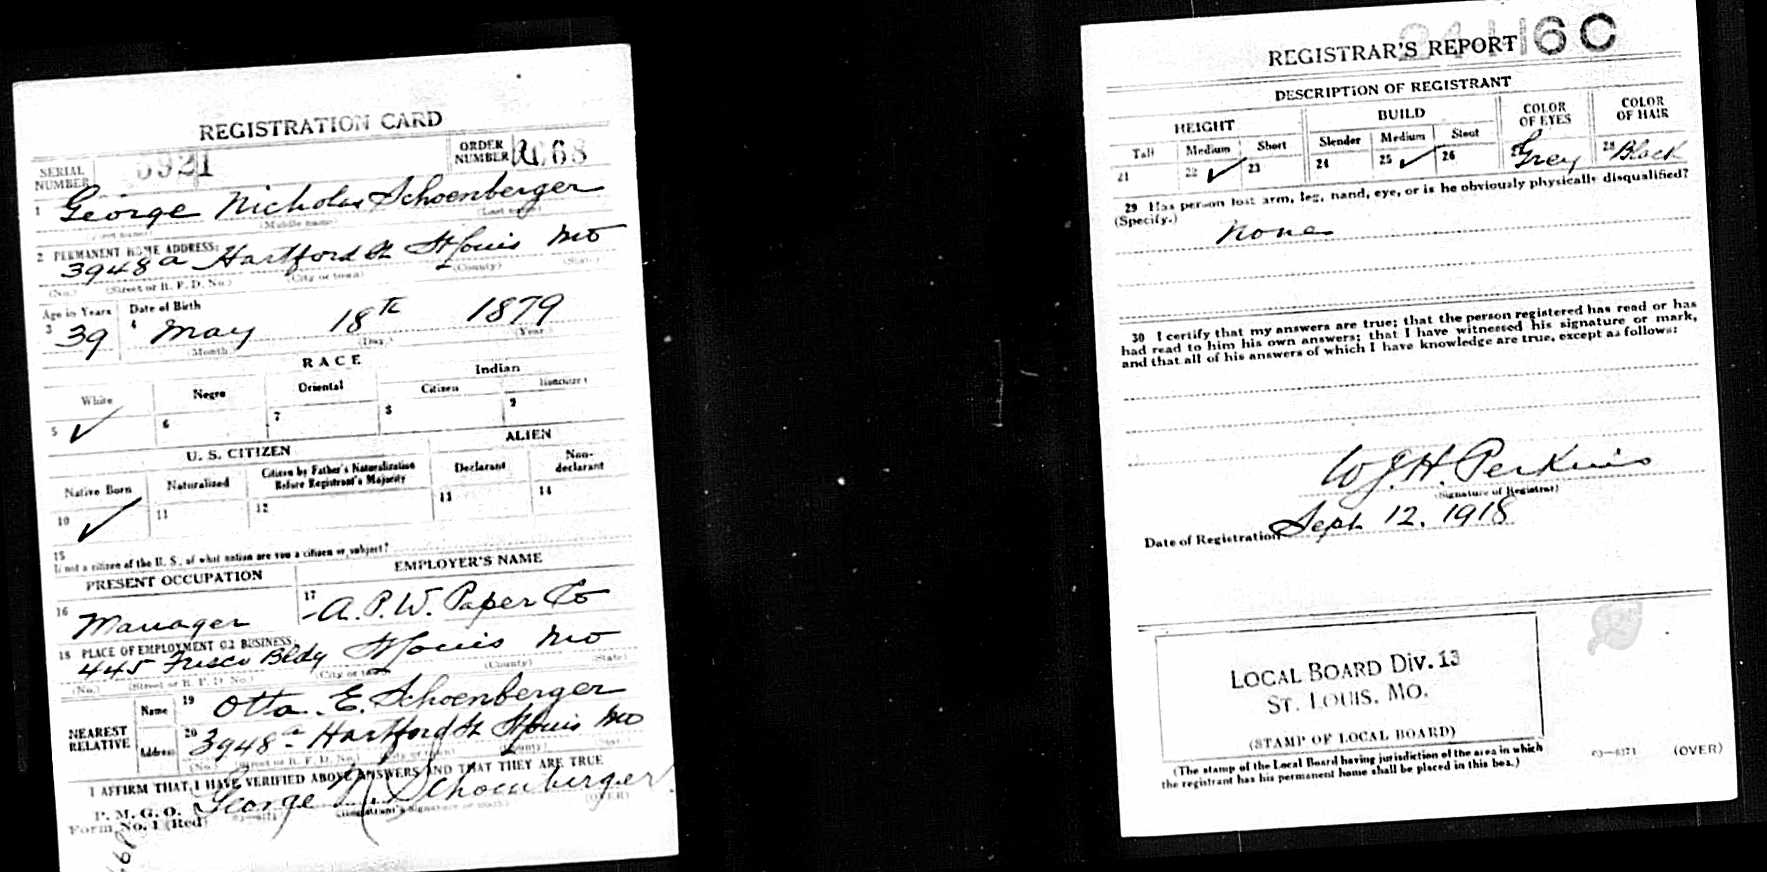 REGISTRATION CARD
SERIAL NUMBER 3921 ORDER NUMBER
1 George Nicholas Schoenberger
(Middle name) (Last name)
2 PERMANENT HOME ADDRESS:
3948a Hartford St St Louis Mo
(No.) (Street or R. F. D. No.) (City or town) (County) (State)
Age in Years Date of Birth
3 39 4 May 18th 1879
(Month) (Day) (Year)
RACE
White Negro Oriental Indian
Citizen
5 ✓ 6 7 8 9
U. S. CITIZEN ALIEN
Native Born Naturalized Citizen by Father's Naturalization Before Registrant's Majority Declarant Non-declarant
10 ✓ 11 12 13 14
15 If not a citizen of the U. S., of what nation are you a citizen or subject?
PRESENT OCCUPATION EMPLOYER'S NAME
16 Manager 17 A. P. W. Paper Co
18 PLACE OF EMPLOYMENT OR BUSINESS:
445 Frisco Bldg St Louis Mo
(No.) (Street or R. F. D. No.) (City or town) (County) (State)
NEAREST RELATIVE Name 19 Otto. E. Schoenberger
Address 20 3948a Hartford St St Louis Mo
I AFFIRM THAT I HAVE VERIFIED ABOVE ANSWERS AND THAT THEY ARE TRUE
P. M. G. O.
Form No. 1 (Red) George N. Schoenberger
(Registrant's signature or mark) (OVER)
REGISTRAR'S REPORT
DESCRIPTION OF REGISTRANT
HEIGHT BUILD COLOR OF EYES COLOR OF HAIR
Tall Medium Short Slender Medium Stout
21 22 ✓ 23 24 25 ✓ 26 27 Grey 28 Black
29 Has person lost arm, leg, hand, eye, or is he obviously physically disqualified?
(Specify.) None
30 I certify that my answers are true; that the person registered has read or has
had read to him his own answers; that I have witnessed his signature or mark,
and that all of his answers of which I have knowledge are true, except as follows:
W. J. H. Perkins
(Signature of Registrar)
Date of Registration Sept 12. 1918
LOCAL BOARD Div. 13
ST. LOUIS, MO.
(STAMP OF LOCAL BOARD)
(The stamp of the Local Board having jurisdiction of the area in which
the registrant has his permanent home shall be placed in this box.)
03—6171 (OVER)